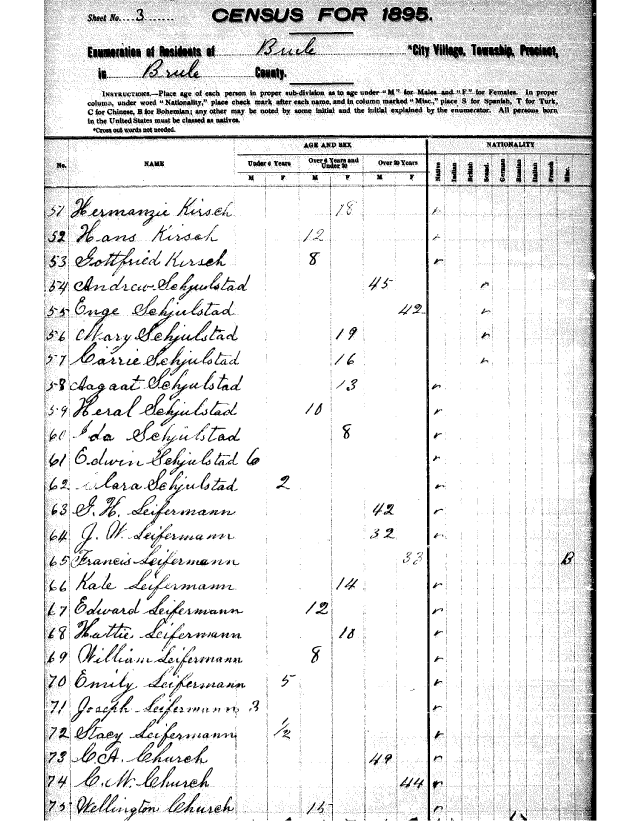 Sheet No. 3
CENSUS FOR 1895.
Enumeration of Residents of Brule *City Village, Township, Precinct,
in Brule County.
INSTRUCTIONS.—Place age of each person in proper sub-division as to age under "M" for Males and "F" for Females. In proper
column, under word "Nationality," place check mark after each name, and in column marked "Misc.," place S for Spanish, T for Turk,
C for Chinese, B for Bohemian; any other may be noted by some initial and the initial explained by the enumerator. All persons born
in the United States must be classed as natives.
*Cross out words not needed.
AGE AND SEX NATIONALITY
No. NAME Under 6 Years Over 6 Years and Under 20 Over 20 Years Native Indian British Scand. German Russian Italian French Misc.
M F M F M F
51 Hermanzie Kirsch 18
52 Hans Kirsch 12
53 Gottfried Kirsch 8
54 Andrew Schjulstad 45
55 Enge Schjulstad 42
56 Mary Schjulstad 19
57 Carrie Schjulstad 16
58 Aagaat Schjulstad 13
59 Heral Schjulstad 10
60 Ida Schjulstad 8
61 Edwin Schjulstad 6
62 Clara Schjulstad 2
63 G. H. Leifermann 42
64 J. W. Leifermann 32
65 Francis Leifermann 33 B
66 Kate Leifermann 14
67 Edward Leifermann 12
68 Hattie Leifermann 10
69 William Leifermann 8
70 Emily Leifermann 5
71 Joseph Leifermann 3
72 Stacy Leifermann 1/2
73 C. A. Church 49
74 C. M. Church 44
75 Wellington Church 15